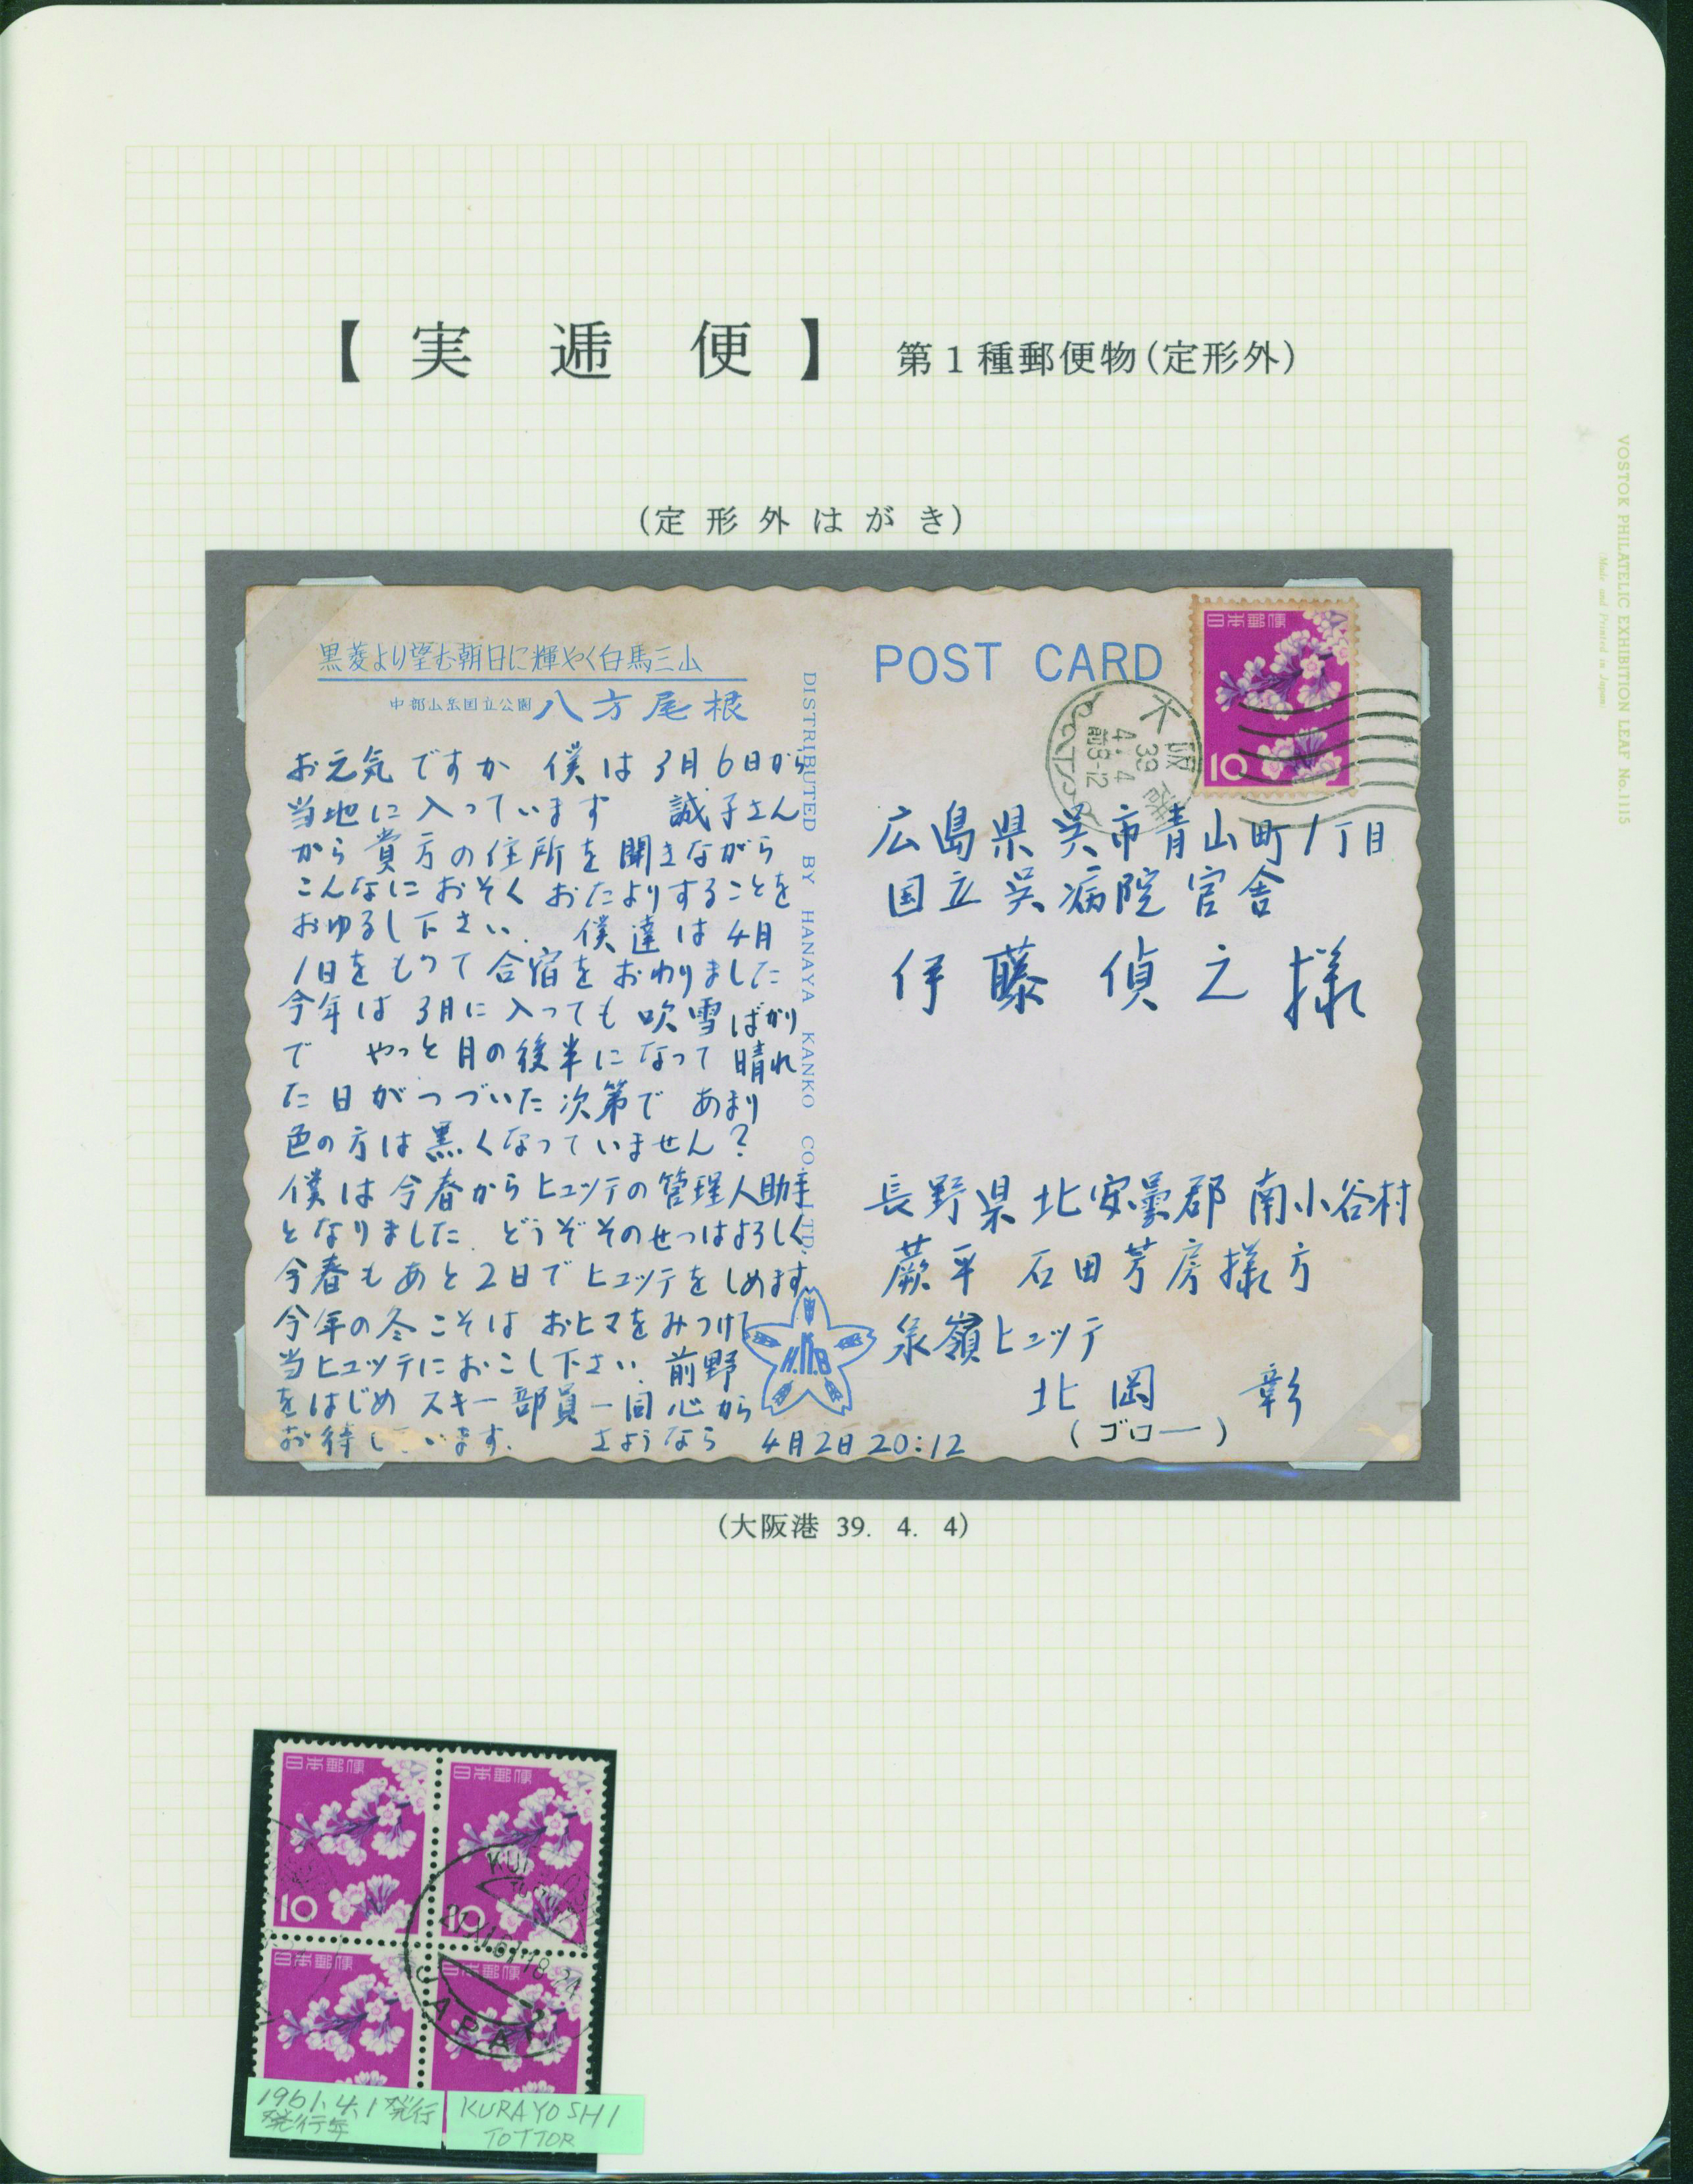 【実逓便】 第1種郵便物(定形外)
(定形外はがき)
黒菱より望む朝日に輝やく白馬三山
中部山岳国立公園 八方尾根
お元気ですか 僕は3月6日から
当地に入っています 誠子さん
から貴方の住所を聞きながら
こんなにおそくおたよりすることを
おゆるし下さい. 僕達は4月
1日をもって合宿をおわりました
今年は3月に入っても吹雪ばかり
で やっと月の後半になって晴れ
た日がつづいた次第で あまり
色の方は黒くなっていません?
僕は今春からヒュッテの管理人助手
となりました. どうぞそのせつはよろしく
今春もあと2日でヒュッテをしめます
今年の冬こそは おヒマをみつけて
当ヒュッテにおこし下さい. 前野
をはじめ スキー部員一同 心から
お待し います. さようなら 4月2日20:12
DISTRIBUTED BY HANAYA KANKO CO., LTD.
H.N.B
POST CARD
日本郵便
10
大阪港
39
4. 4
前8-12
広島県呉市青山町1丁目
国立呉病院官舎
伊藤 偵之様
長野県北安曇郡 南小谷村
蕨平 石田芳房様方
泉嶺ヒュッテ
北岡 彰
(ゴロー)
(大阪港 39. 4. 4)
日本郵便
10
日本郵便
10
日本郵便
日本郵便
JAPAN
1961.4.1発行
発行年
KURAYOSHI
TOTTOR
VOSTOK PHILATELIC EXHIBITION LEAF No.1115
(Made and Printed in Japan)